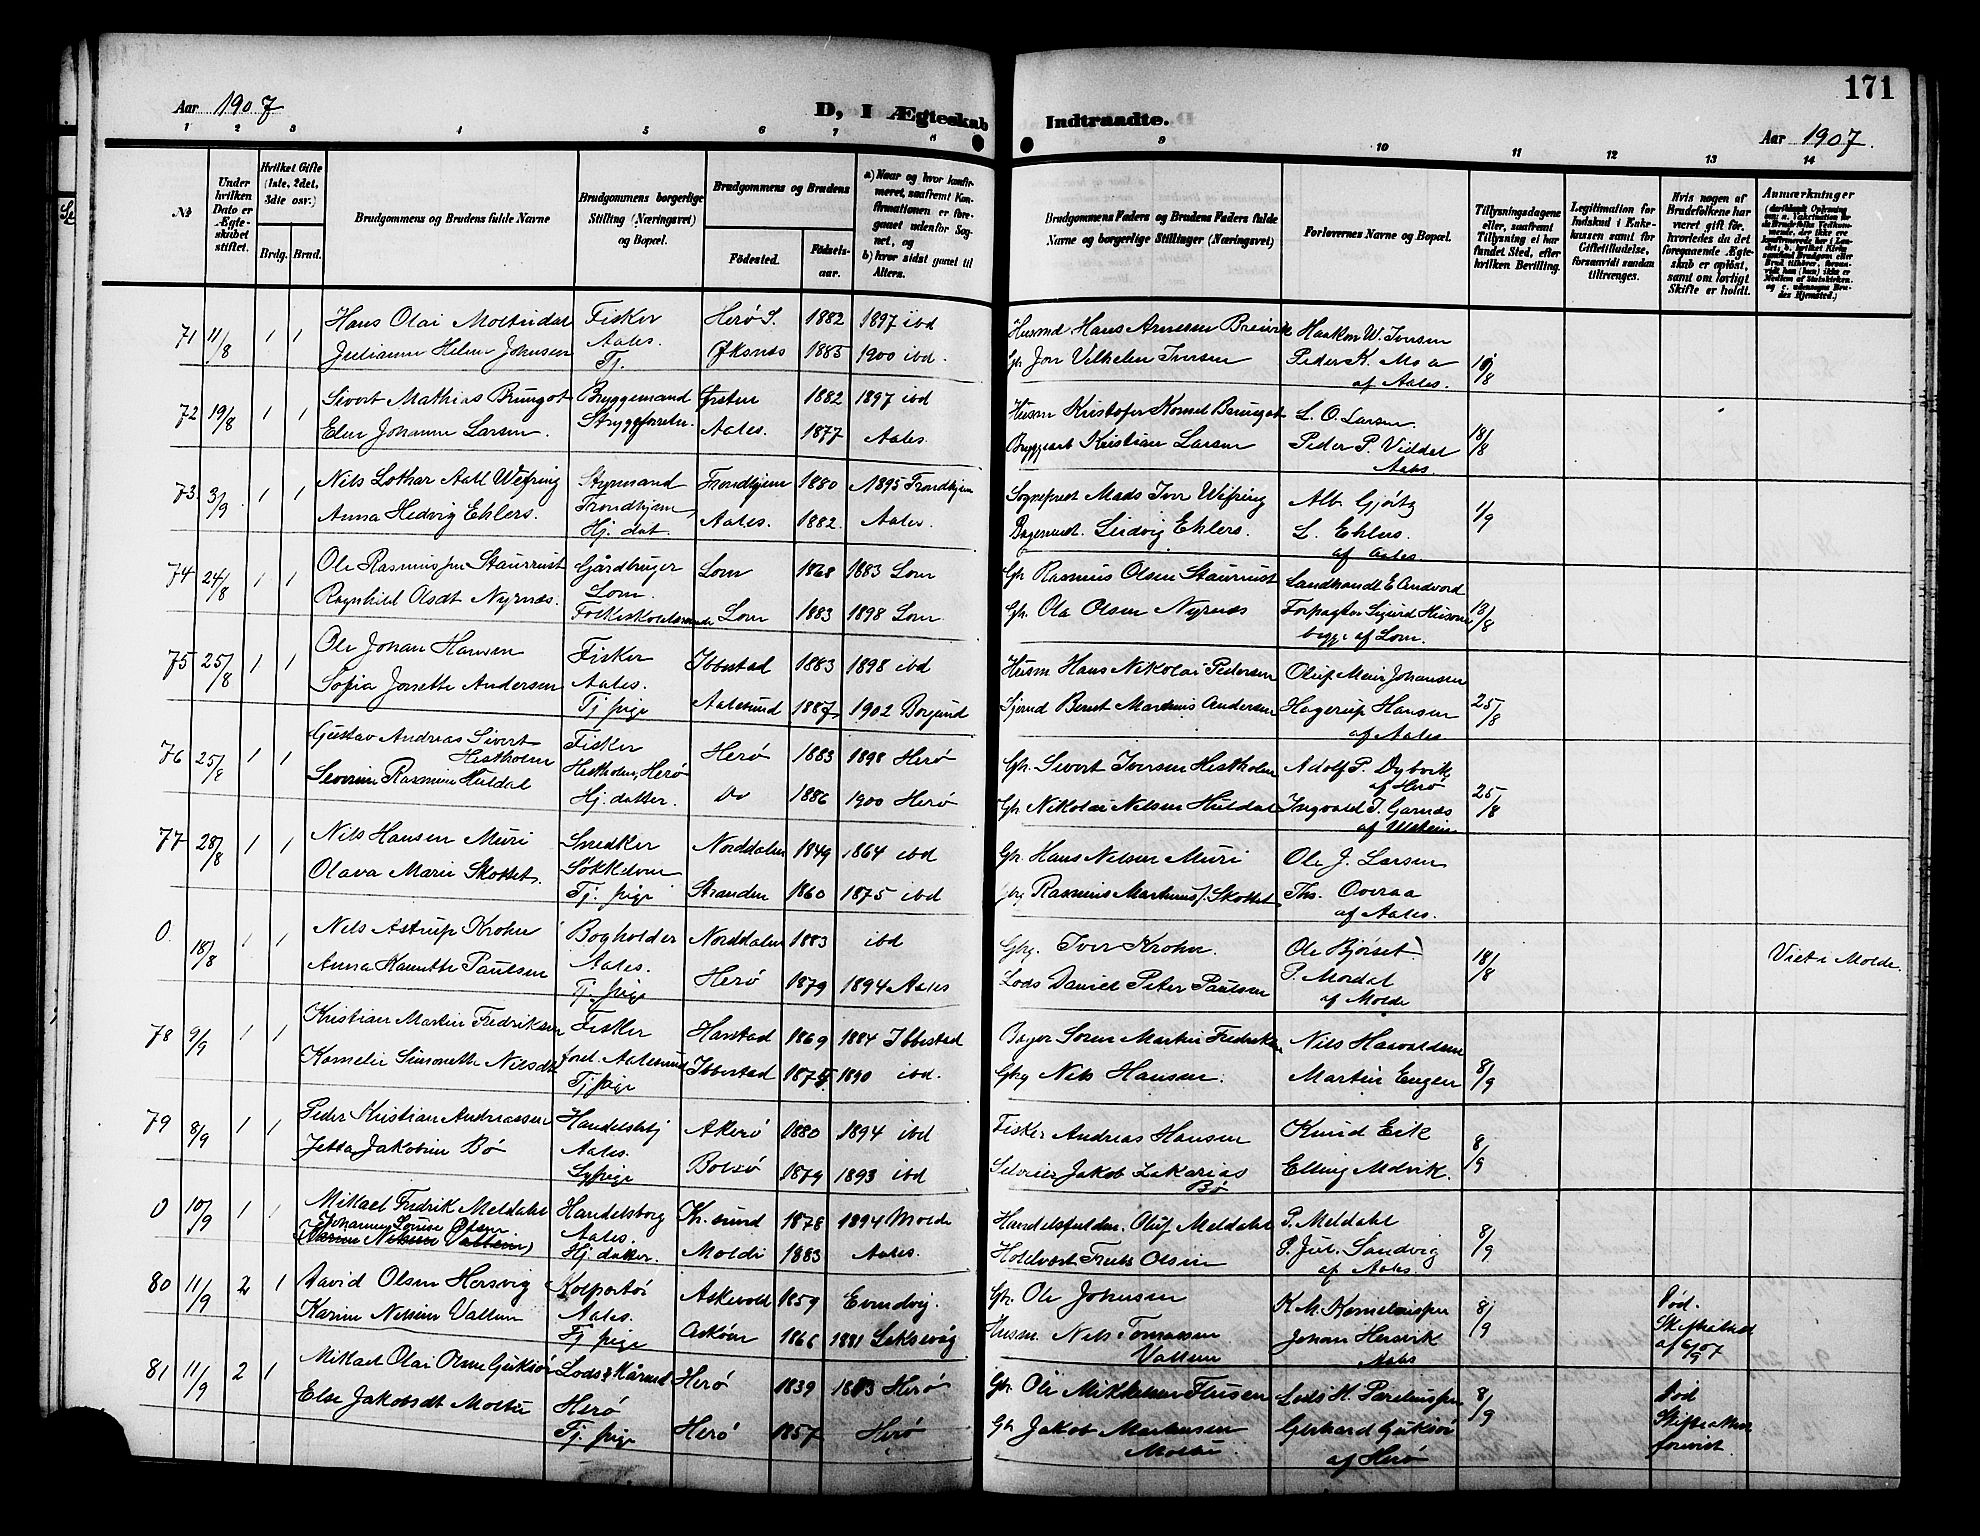 171
Aar 1907
D, I Ægteskab Indtraadte.
Aar 1907.
1 2 3 4 5 6 7 8 9 10 11 12 13 14
No
Under hvilken Dato er Ægteskabet stiftet.
Hvilket Gifte (1ste, 2det, 3die osv.)
Brdg. Brud.
Brudgommens og Brudens fulde Navne
Brudgommens borgerlige Stilling (Næringsvei) og Bopæl.
Brudgommens og Brudens
Fødested. Fødselsaar.
a) Naar og hvor konfirmeret, saafremt Konfirmationen er foregaaet udenfor Sognet, og b) hvor sidst gaaet til Alters.
Brudgommens Faders og Brudens Faders fulde Navne og borgerlige Stillinger (Næringsvei)
Forlovernes Navne og Bopæl.
Tillysningsdagene eller, saafremt Tillysning ei har fundet Sted, efter hvilken Bevilling.
Legitimation for Indskud i Enkekassen samt for Giftetilladelse, forsaavidt saadan tiltrænges.
Hvis nogen af Brudefolkene har været gift før, hvorledes da det foregaaende Ægteskab er opløst, samt om lovligt Skifte er holdt.
Anmærkninger
71 11/8 1 1 Hans Olai Moltudal Fisker Herø S. 1882 1897 ibd Husmd Hans Arnesen Breivik Haakon W. Iversen
Julianne Helene Johnsen Aales. Tj. Øksnes 1885 1900 ibd. Gbr. Jon Vilhelm Iversen Peder K. Moa af Aales. 10/8
72 19/8 1 1 Sivert Mathias Brungot Bryggemand Ørsten 1882 1897 ibd Husm Kristofer Kornel Brungot L. O. Larsen
Eline Johanne Larsen. Strygeforretn. Aales. 1877 Aales. Bryggearb Kristian Larsen Peder P. Viddal Aales 18/8
73 3/9 1 1 Nils Lothar Aall Wefring Styrmand Trondhjem 1880 1895 Trondhjem Sogneprest Mads Iver Wefring Alb. Gjørtz 1/9
Anna Hedvig Ehlers. Trondhjem Hj. dat. Aales. 1882. Aales. Bagermest. Ludvig Ehlers. L. Ehlers. af Aales
74 24/8 1 1 Ole Rasmussen Staurust Gårdbruger Lom 1868 1883 Lom Gbr Rasmus Olsen Staurust Landhandl E Andvord
Ragnhild Olsdt Nyrnæs. Lom. Lom 1883 1898 Lom Gbr. Ola Olsen Nyrnæs Forpagter Sigurd 13/8
begge af Lom.
75 25/8 1 1 Ole Johan Hansen Fisker Ibbestad 1883 1898 ibd Husm Hans Nikolai Pedersen Oluf Meier Johansen
Sofia Jonette Andersen Aales. Tj pige Aalesund 1887 1902 Borgund Bernt Martinus Andersen Hagerup Hansen af Aales 25/8
76 25/8 1 1 Gustav Andreas Sivert Hestholm Fisker Herø 1883 1898 Herø Gbr. Sivert Iversen Hestholm Adolf P. Dybvik af Herø
Severine Rasmine Huldal Hestholm, Herø Hj. datter. Do 1886 1900 Herø Gbr Nikolai Nilsen Huldal Ingvald T. Garnæs af Ulstein 25/8
77 28/8 1 1 Nils Hansen Muri Snedker Norddalen 1849 1864 ibd Gbr. Hans Nilsen Muri Ole J. Larsen
Olava Marie Skottet. Søkkelven Tj. pige Stranden 1860 1875 ibd Gbr Rasmus Martinus. Skottet Ths. Overaa af Aales.
0. 18/8 1 1 Nils Astrup Krohn Bogholder Norddalen 1883 ibd Gbr. Iver Krohn. Ole Bjørset
Anna Hanette Paulsen Aales. Tj. pige Herø 1879 1894 Aales Lods Daniel Peter Paulsen P. Mordal af Molde 18/8 Viet i Molde.
78 9/9 1 1 Kristian Martin Fredriksen Fisker Harstad 1869 1884 Ibbestad Søren Martin Fredriksen Nils Haavaldsen
Kornelie Simonette Nilsdt Aalesund Tj pige Ibbestad 1875 1890 ibd. Gbr Nils Hansen. Martin Eugen 8/9
79 8/9 1 1 Peder Kristian Andreassen Handelsbtj Akerø 1880 1894 ibd Fisker Andreas Hansen Knud Eik
Jetta Jakobine Bø Aales. Sypige Bolsø 1879 1893 ibd Jakob Zakarias Bø Elling Mdvik. 8/9
0 10/9 1 1 Mikael Fredrik Meldahl Handelsborg Kr.sund 1878 1894 Molde Handelsfuldm. Oluf Meldahl P. Meldahl
Johanne Louise Olsen Aales. Hj. datter. Molde 1883 Aales. Olsen P. Jul. Sandvig af Aales 8/9
(Karine Nilsine Vallein)
80 11/9 2 1 David Olsen Hersvig Kolportør Askevold 1859 Evindvig. Gbr. Ole Johnsen K. M. Kornelius
Karine Nilsine Vallein Aales. Tj pige Askøen 1866 1881 Laksevåg Husm. Nils Tomassen Vallein Johan Hersvik Aales 8/9 Død. Skifteattest af 6/9 07
81 11/9 2 1 Mikael Olai Olsen Gjuksøi Lods & Kårmd Herø 1839 1853 Herø Gbr. Ole Mikkelsen Flusen Lods H. Parelius
Else Jakobsdt Moltu Herø Tj. pige Herø 1857 Herø Gbr Jakob Martinusen Moltu. Gerhard Gjuksøi af Herø 8/9 Død Skifteattest forevist.